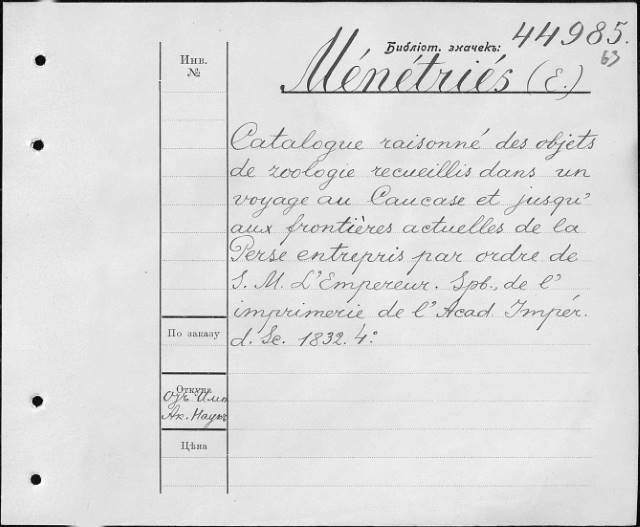 44985.
Библіот. значекъ:
63
Инв.
№
Ménétriés (E.)
Catalogue raisonné des objets
de zoologie recueillis dans un
voyage au Caucase et jusqu'
aux frontières actuelles de la
Perse entrepris par ordre de
S. M. L'Empereur. Spb., de l'
imprimerie de l'Acad. Impér.
d. Sc. 1832. 4º
По заказу
Откуда
Отъ Имп.
Ак. Наукъ
Цѣна